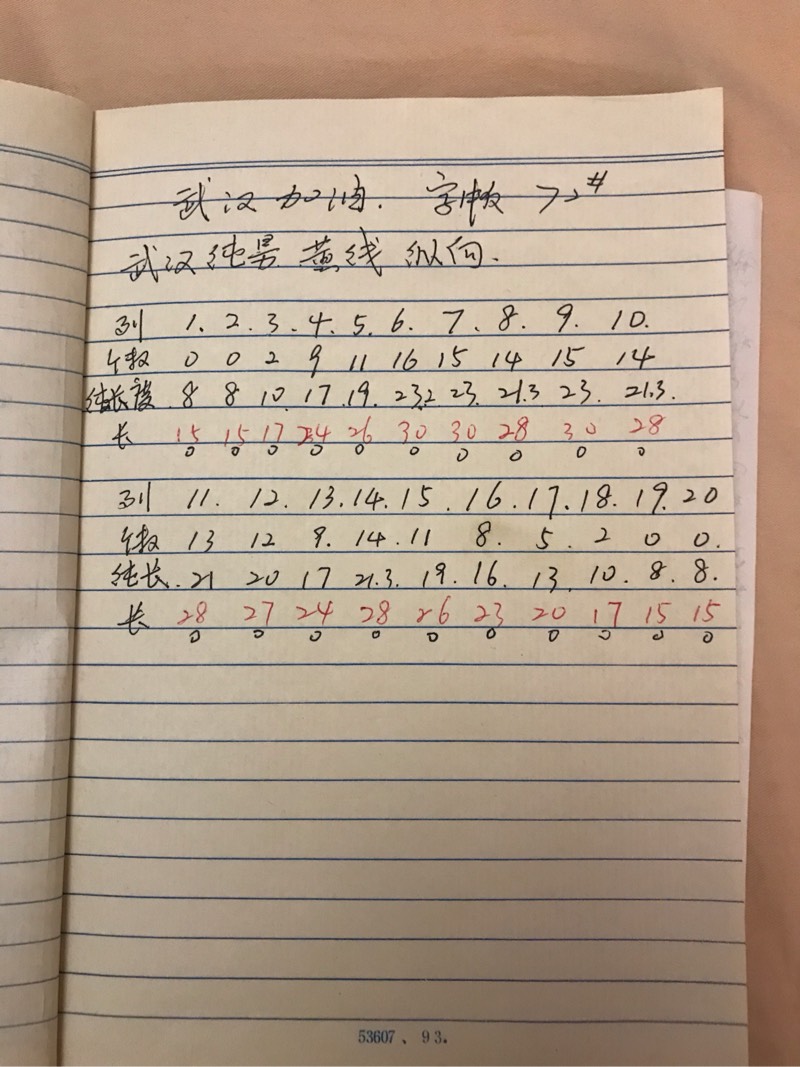 武汉加油. 字版 72#
武汉纯景 黄线 纵向.
列 1. 2. 3. 4. 5. 6. 7. 8. 9. 10.
个数 0 0 2 9 11 16 15 14 15 14
纯长度 8 8 10. 17 19. 23.2 23. 21.3 23. 21.3.
长 15 15 17 24 26 30 30 28 30 28
0 0 0 0 0 0 0 0 0 0
列 11. 12. 13. 14. 15. 16. 17. 18. 19. 20
个数 13 12 9. 14. 11 8. 5. 2 0 0.
纯长. 21 20 17 21.3. 19. 16. 13. 10. 8. 8.
长 28 27 24 28 26 23 20 17 15 15
0 0 0 0 0 0 0 0 0 0
53607、93.